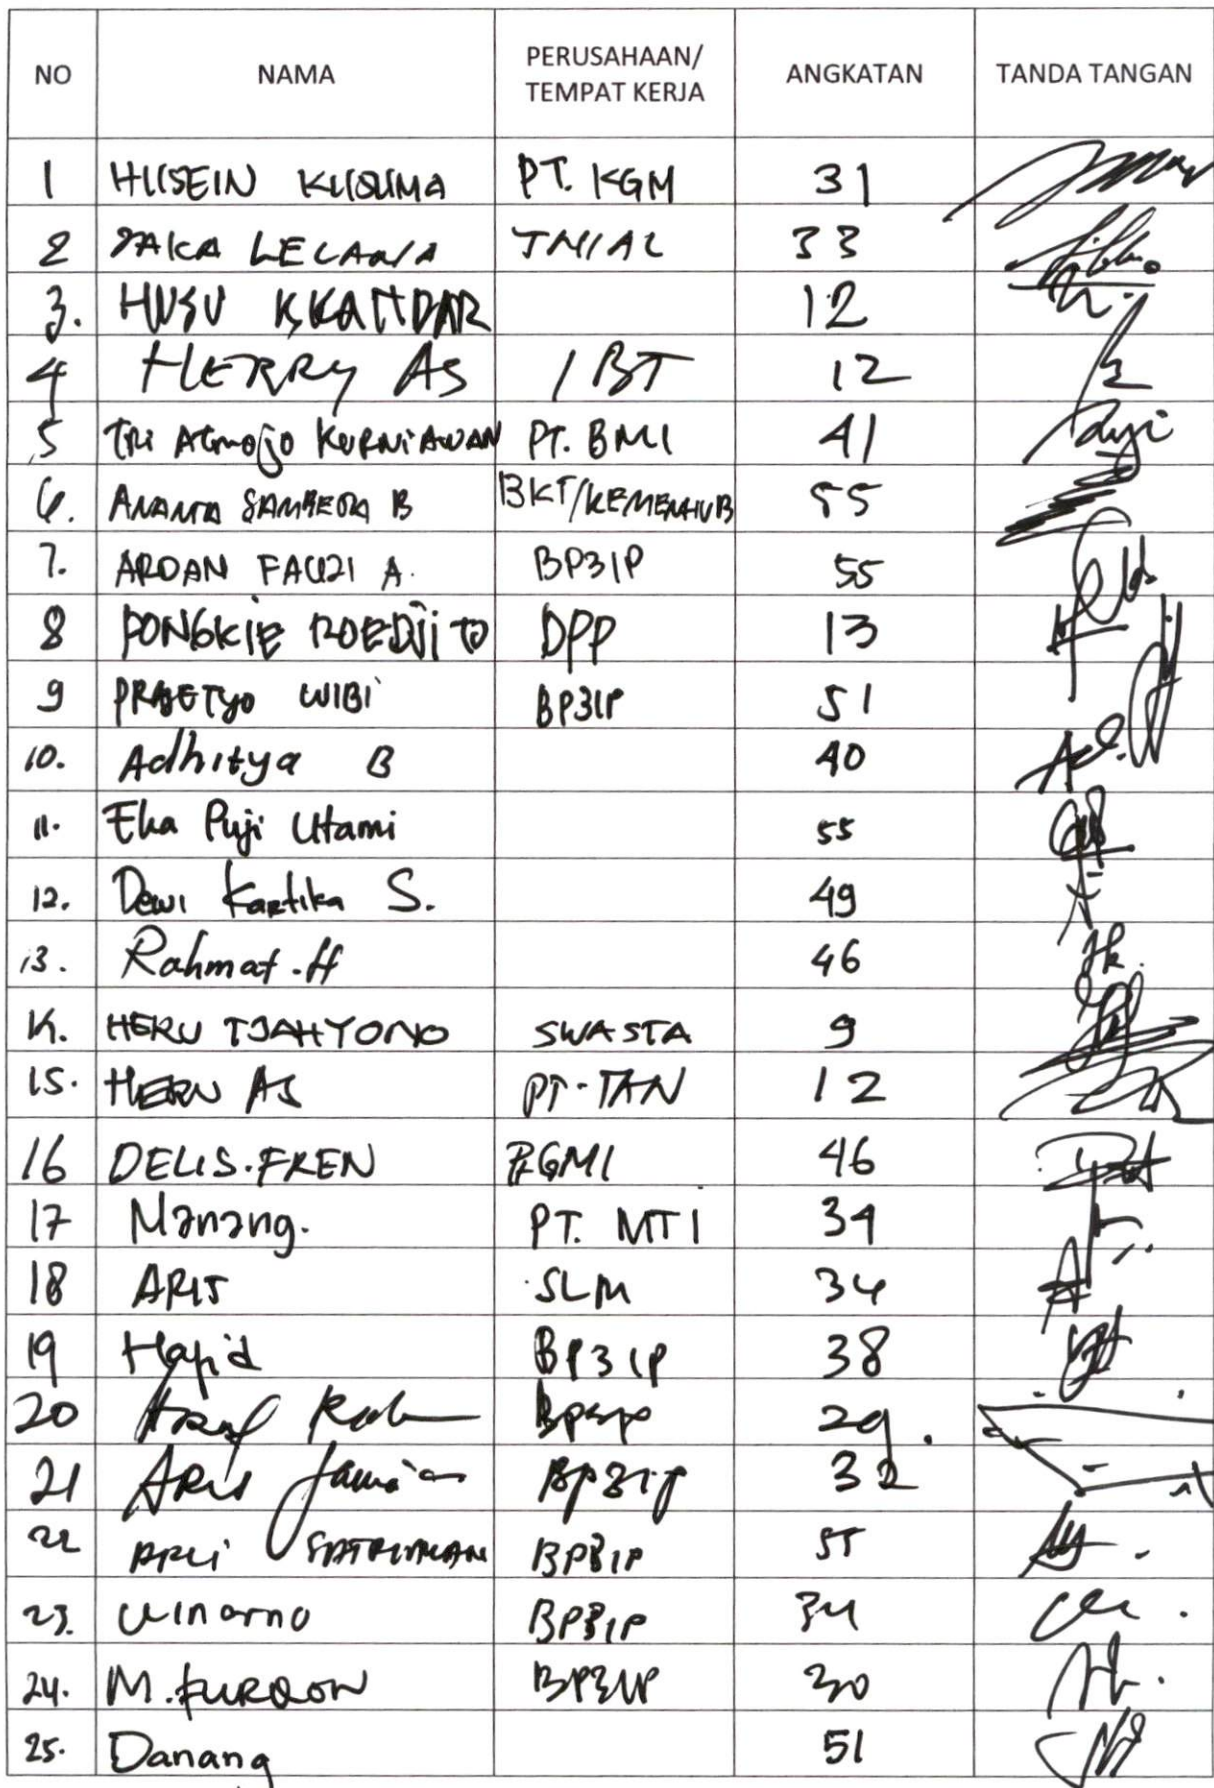 NO NAMA PERUSAHAAN/ TEMPAT KERJA ANGKATAN TANDA TANGAN
1 HUSEIN KUSUMA PT. KGM 31
2 JAKA LELANA TNI AL 33
3. 12
4 HERRY AS IBT 12
5 Tri Atmojo KURNiAWAN PT. BMI 41
6. ANANTA B BKT/KEMENHUB 55
7. ARDAN FAUZI A. BP3IP 55
8 PONGKIE ROEDJiTO DPP 13
9 PRASETyo WIBI BP3IP 51
10. Adhitya B 40
11. Eka Puji Utami 55
12. Dewi Kartika S. 49
13. Rahmat .H 46
14. HERU TJAHYONO SWASTA 9
15. HERU AS PT-TAN 12
16 DELIS.FREN 46
17 Nanang. PT. MTI 34
18 SLM 34
19 Hapid BP3IP 38
20 29.
21 ARIS BP3IP 32
22 BP3IP 55
23. Winarno BP3IP 34
24. M.FURQON BP3IP 30
25. Danang 51